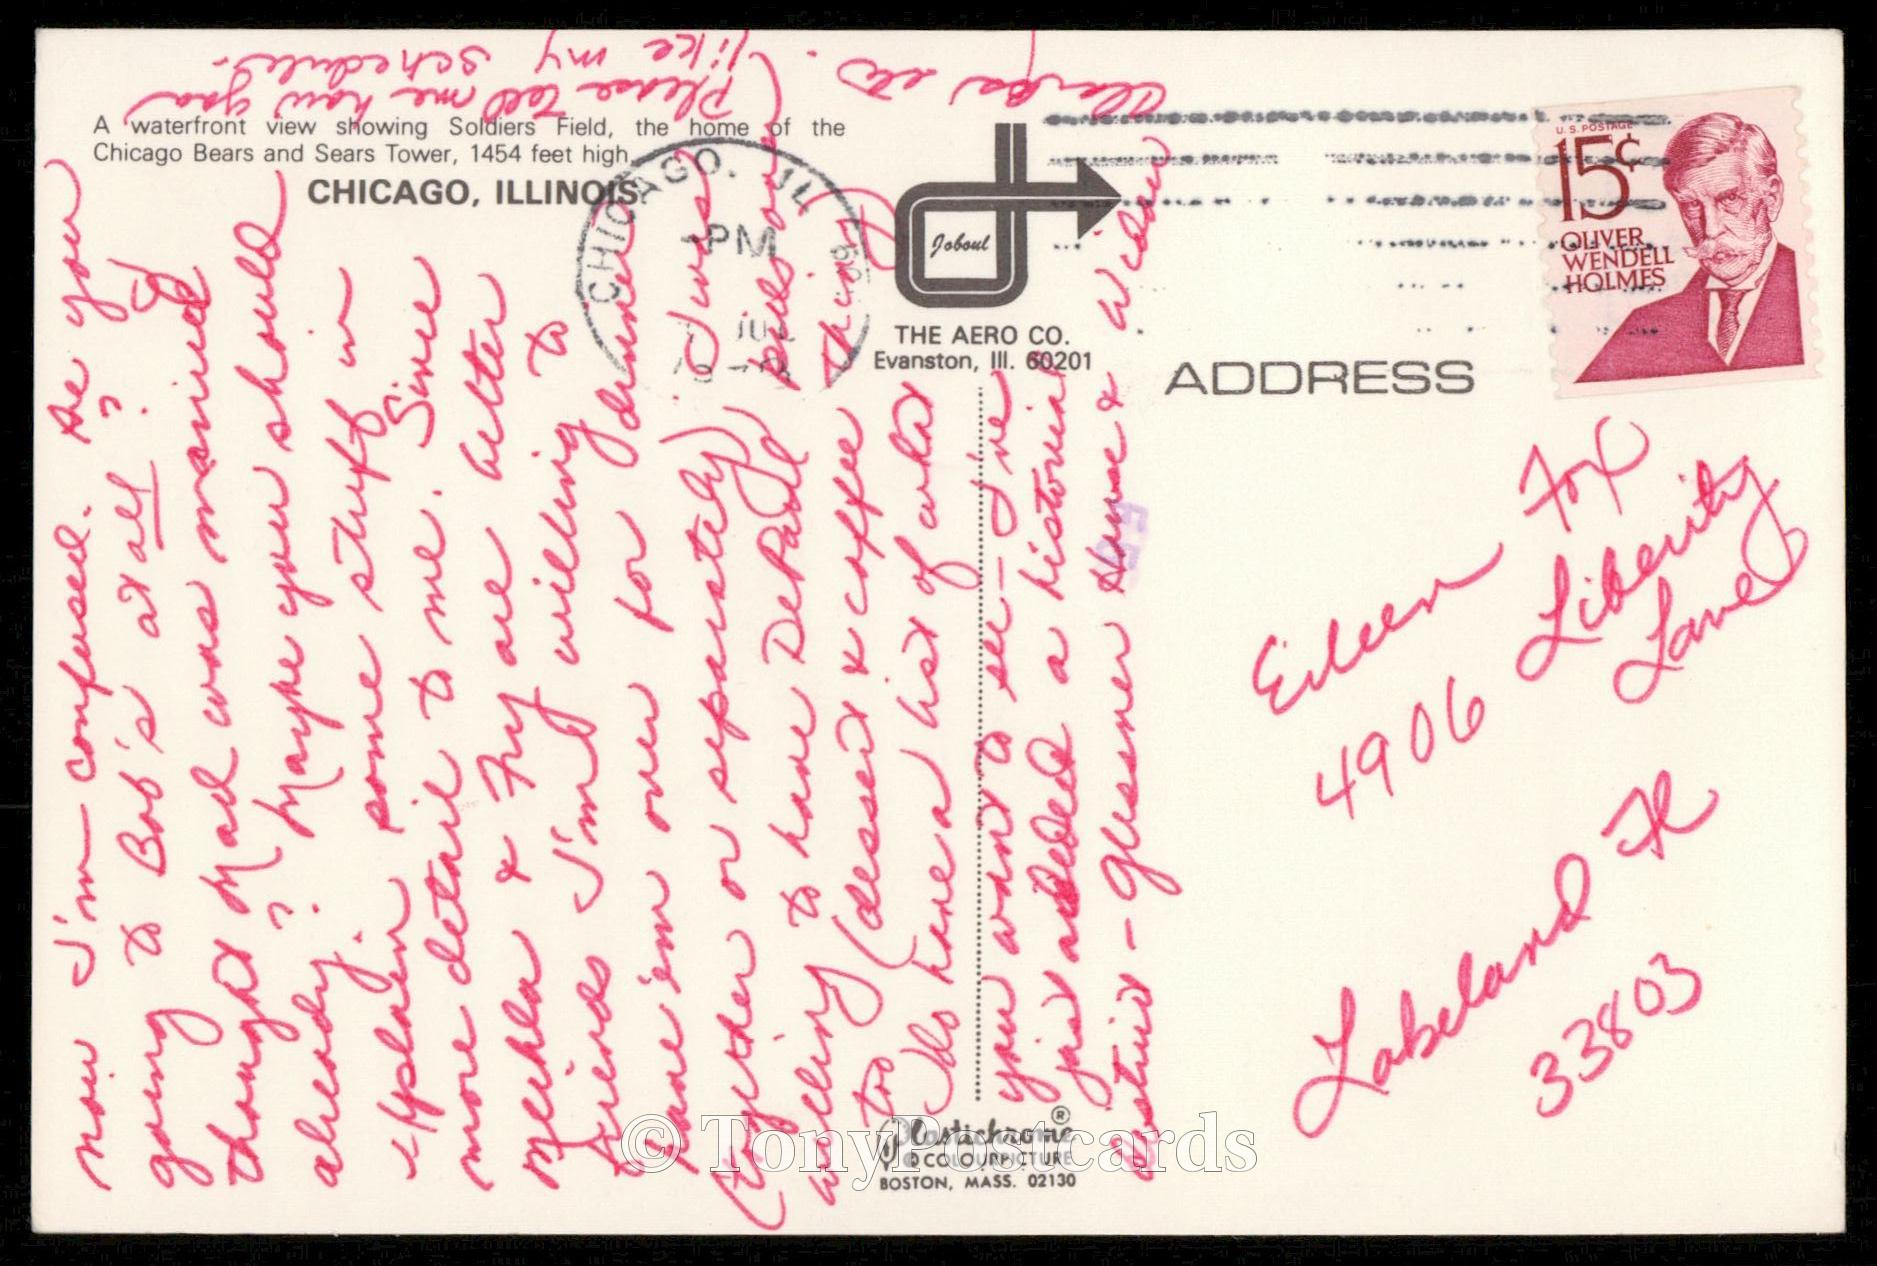 A waterfront view showing Soldiers Field, the home of the
Chicago Bears and Sears Tower, 1454 feet high.
CHICAGO, ILLINOIS
CHICAGO, IL
PM
JUL
Joboul
THE AERO CO.
Evanston, Ill. 60201
ADDRESS
U.S. POSTAGE
15¢
OLIVER
WENDELL
HOLMES
now I'm confused. Are you
going to Bob's at all?
thought Mael was married
already? Maybe you should
explain some stuff in
more detail to me. Since
& Fry are better
friends I'm willing to
have 'em over for dinner
(together or separately) I was
willing to have DePaul
too (dessert & coffee
I do have a list of what
you want to see - I've
just added a historical
district - Glessner House & Widow
Clarks etc.
(Please tell me how you
like my schedule.
Eileen Fox
4906 Liberity
Lane
Lakeland Fl
33803
Plastichrome®
COLOURPICTURE
BOSTON, MASS. 02130
© TonyPostcards